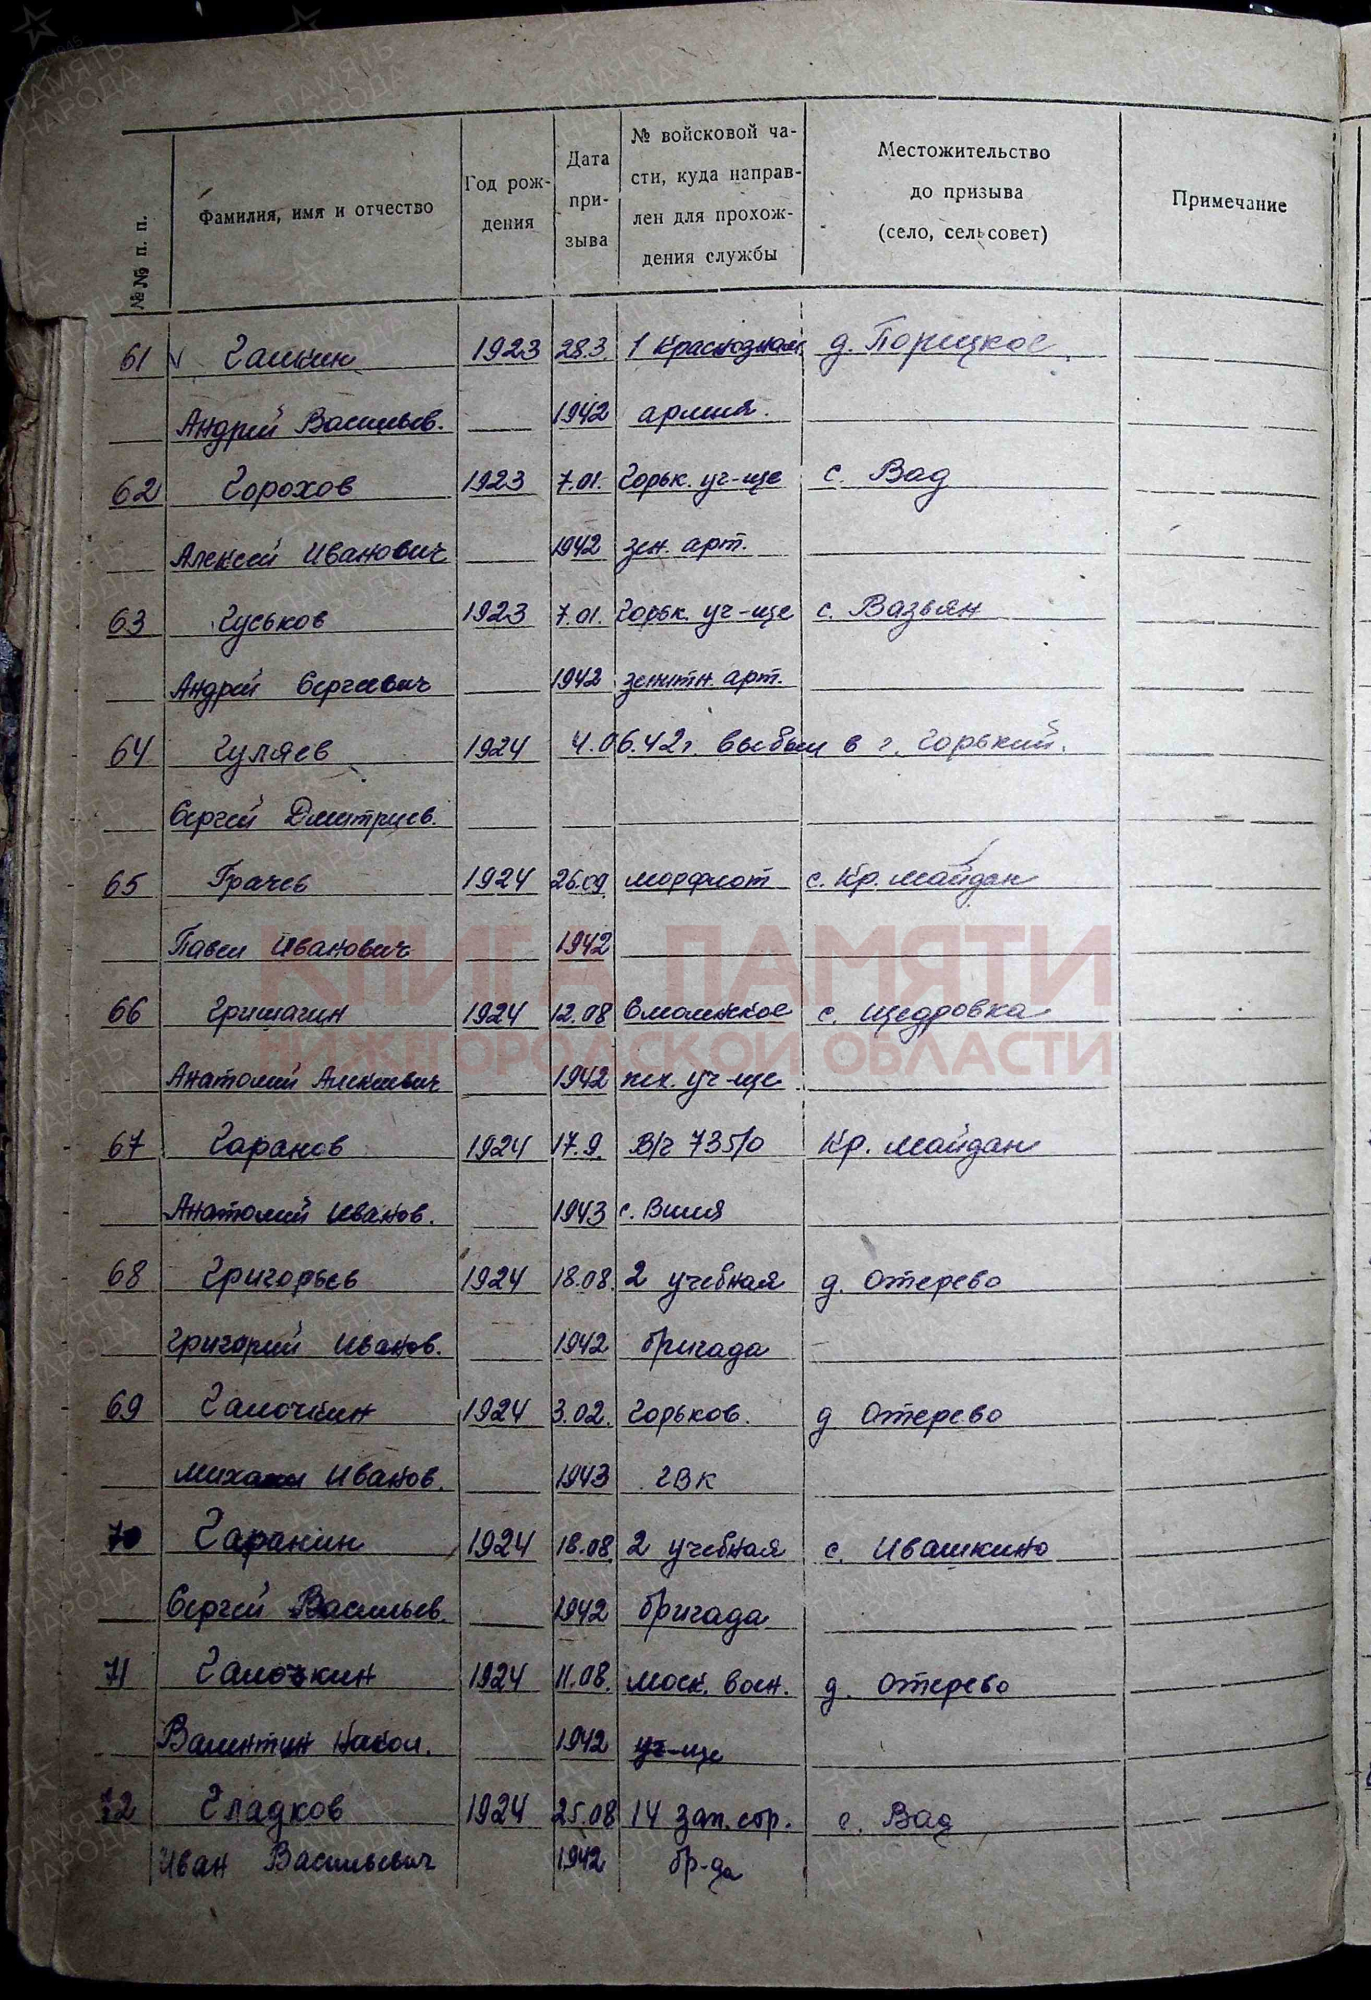 №№ п. п.
Фамилия, имя и отчество
Год рож-
дения
Дата
при-
зыва
№ войсковой ча-
сти, куда направ-
лен для прохож-
дения службы
Местожительство
до призыва
(село, сельсовет)
Примечание
61 Галкин 1923 28.3 1 Краснознам. д. Порецкое
Андрей Васильев. 1942 армия.
62 Горохов 1923 7.01. Горьк. уч-ще с. Вад
Алексей Иванович 1942 зен. арт.
63 Гуськов 1923 7.01. Горьк. уч-ще с. Вазьян
Андрей Сергеевич 1942 зенитн. арт.
64 Гуляев 1924 4.06.42г. выбыл в г. Горький.
Сергей Дмитриев.
65 Грачев 1924 26.09. морфлот с. Кр. Майдан
Павел Иванович 1942
КНИГА ПАМЯТИ
66 Гришагин 1924 12.08 с. Щедровка
НИЖЕГОРОДСКОЙ ОБЛАСТИ
Анатолий Алексеевич 1942 пех. уч-ще
67 Гаранов 1924 17.9. В/ч 735/0 Кр. Майдан
Анатолий Иванов. 1943 с.
68 Григорьев 1924 18.08. 2 учебная д. Отерево
Григорий Иванов. 1942 бригада
69 Галочкин 1924 3.02. Горьков. д Отерево
Михаил Иванов. 1943 ГВК
70 Гаранин 1924 18.08. 2 учебная с. Ивашкино
Сергей Васильев. 1942 бригада
71 Галочкин 1924 11.08. Моск. воен. д. Отерево
Валентин 1942 уч-ще
72 Гладков 1924 25.08 14 зап. стр. с. Вад
Иван Васильевич 1942 бр-да